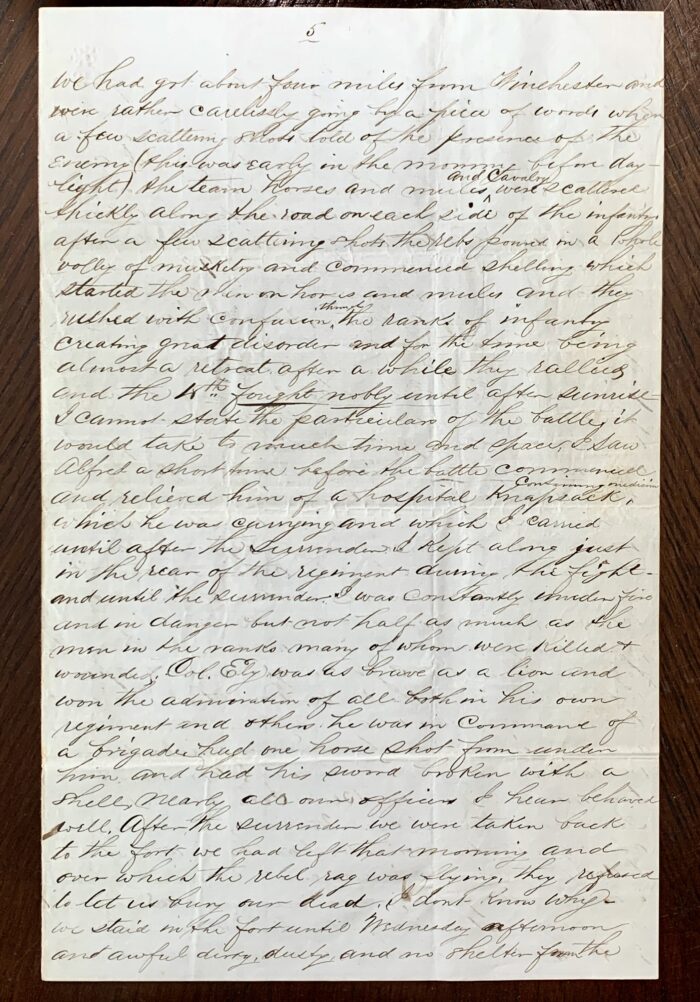 5
we had got about four miles from Winchester and
were rather carelessly going by a piece of woods when
a few scattering shots told of the presence of the
Enemy (this was early in the morning before day-
light) the team horses and mules and Cavalry were scattered
thickly along the road on each side of the infantry
after a few scattering shots the rebs poured in a whole
volley of musketry and commenced shelling which
started the horses and mules and they
rushed with confusion through the ranks of infantry
creating great disorder and for the time being
almost a retreat after a while they rallied
and the 18th fought nobly until after sunrise-
I cannot state the particulars of the battle, it
would take to much time and space, I saw
Alfred a short time before the battle commenced
and relieved him of a hospital Knapsack, Containing medicine
which he was carrying and which I carried
until after the surrender I kept along just
in the rear of the regiment during the fight-
and until the surrender. I was constantly under fire
and in danger but not half as much as the
men in the ranks many of whom were killed +
wounded, Col. Ely was as brave as a lion and
won the admiration of all both in his own
regiment and others he was in Command of
a brigade, had one horse shot from under
him and had his sword broken with a
shell, Nearly all our officers I hear behaved
well. After the surrender we were taken back
to the fort we had left that morning and
over which the rebel rag was flying, they refused
to let us bury our dead, I dont know why
we staid in the fort until Wednesday afternoon
and awful dirty, dusty, and no shelter from the